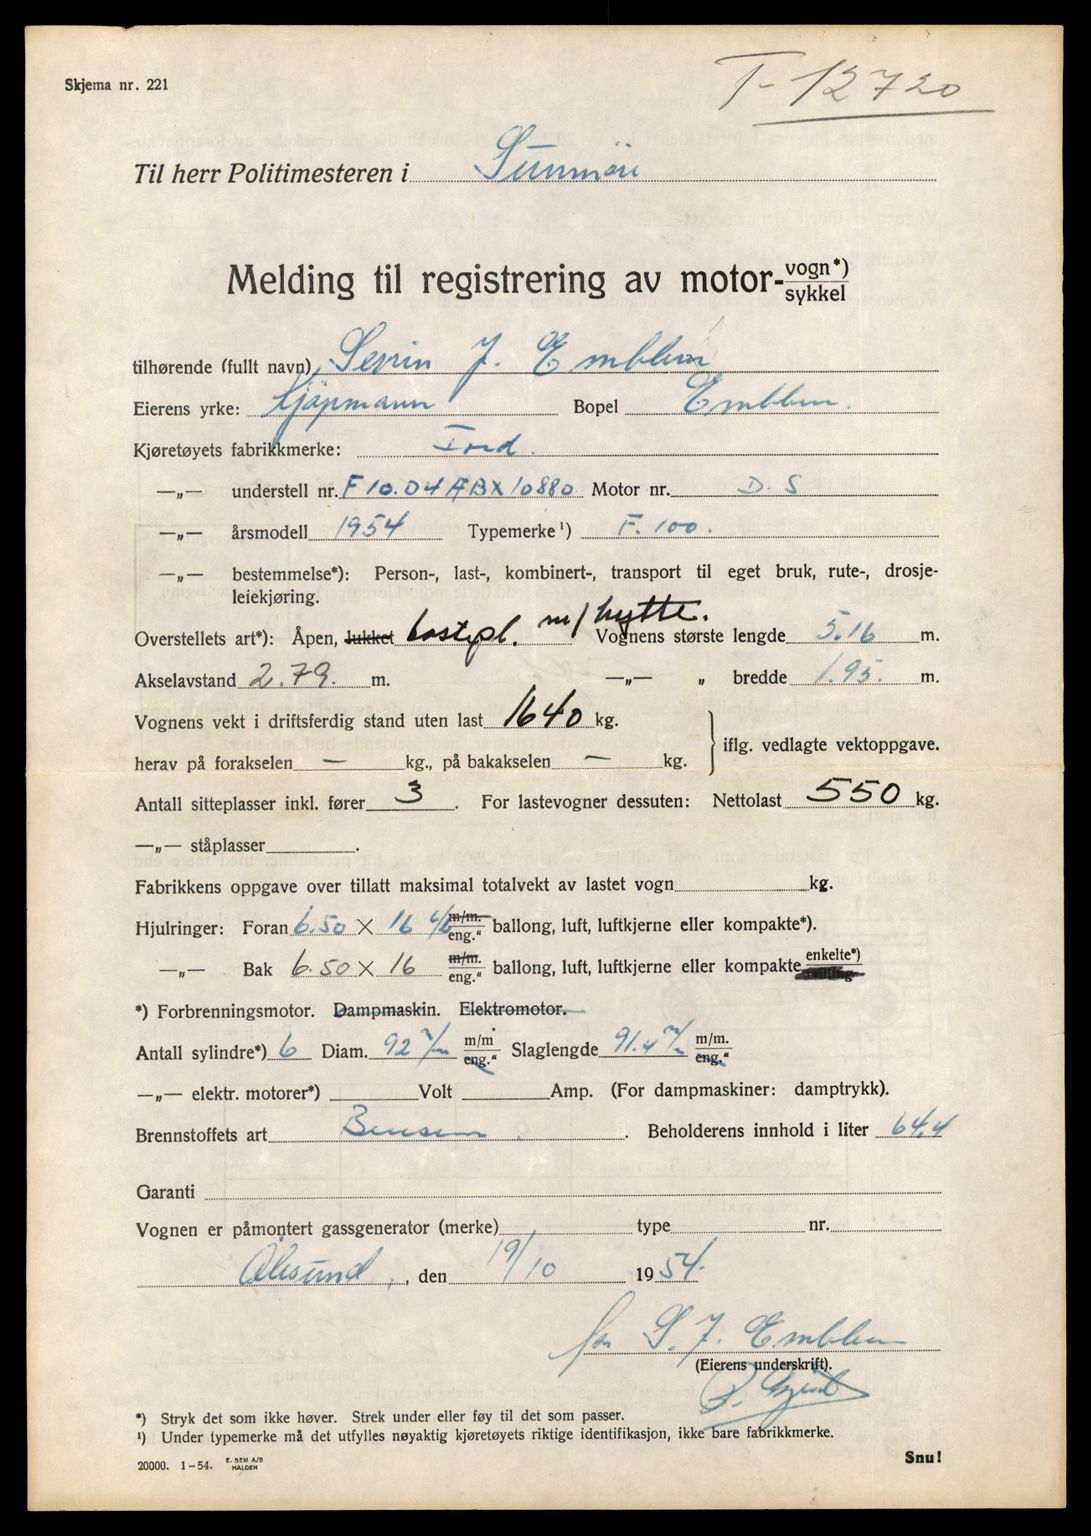 Skjema nr. 221
T-12720
Til herr Politimesteren i Sunmöre
Melding til registrering av motor-vogn*)
sykkel
tilhørende (fullt navn) Sevrin J. Emblem
Eierens yrke: Kjöpmann Bopel Emblem.
Kjøretøyets fabrikkmerke: Ford.
—„— understell nr. F10.D4 ÆBX10880 Motor nr. D. S
—„— årsmodell 1954 Typemerke¹) F. 100.
—„— bestemmelse*): Person-, last-, kombinert-, transport til eget bruk, rute-, drosje-
leiekjøring.
Overstellets art*): Åpen, lukket lastepl. m/hytte. Vognens største lengde 5.16 m.
Akselavstand 2.79. m. —„— „ bredde 1.95. m.
Vognens vekt i driftsferdig stand uten last 1640 kg.
herav på forakselen — kg., på bakakselen — kg. iflg. vedlagte vektoppgave.
Antall sitteplasser inkl. fører 3. For lastevogner dessuten: Nettolast 550 kg.
—„— ståplasser .
Fabrikkens oppgave over tillatt maksimal totalvekt av lastet vogn kg.
Hjulringer: Foran 6.50 X 16 m/m. eng." ballong, luft, luftkjerne eller kompakte*).
—„— Bak 6.50 X 16 m/m. eng." ballong, luft, luftkjerne eller kompakte enkelte*)
*) Forbrenningsmotor. Dampmaskin. Elektromotor.
Antall sylindre*) 6 Diam. 92 m/m m/m eng." Slaglengde 91.4 m/m m/m. eng."
—„— elektr. motorer*) Volt Amp. (For dampmaskiner: damptrykk).
Brennstoffets art Bensin. Beholderens innhold i liter 64.4
Garanti
Vognen er påmontert gassgenerator (merke) type nr.
Ålesund, den 19/10 1954.
for S. J. Emblem
(Eierens underskrift).
*) Stryk det som ikke høver. Strek under eller føy til det som passer.
¹) Under typemerke må det utfylles nøyaktig kjøretøyets riktige identifikasjon, ikke bare fabrikkmerke.
20000. 1-54. E. SEM A/S HALDEN
Snu!